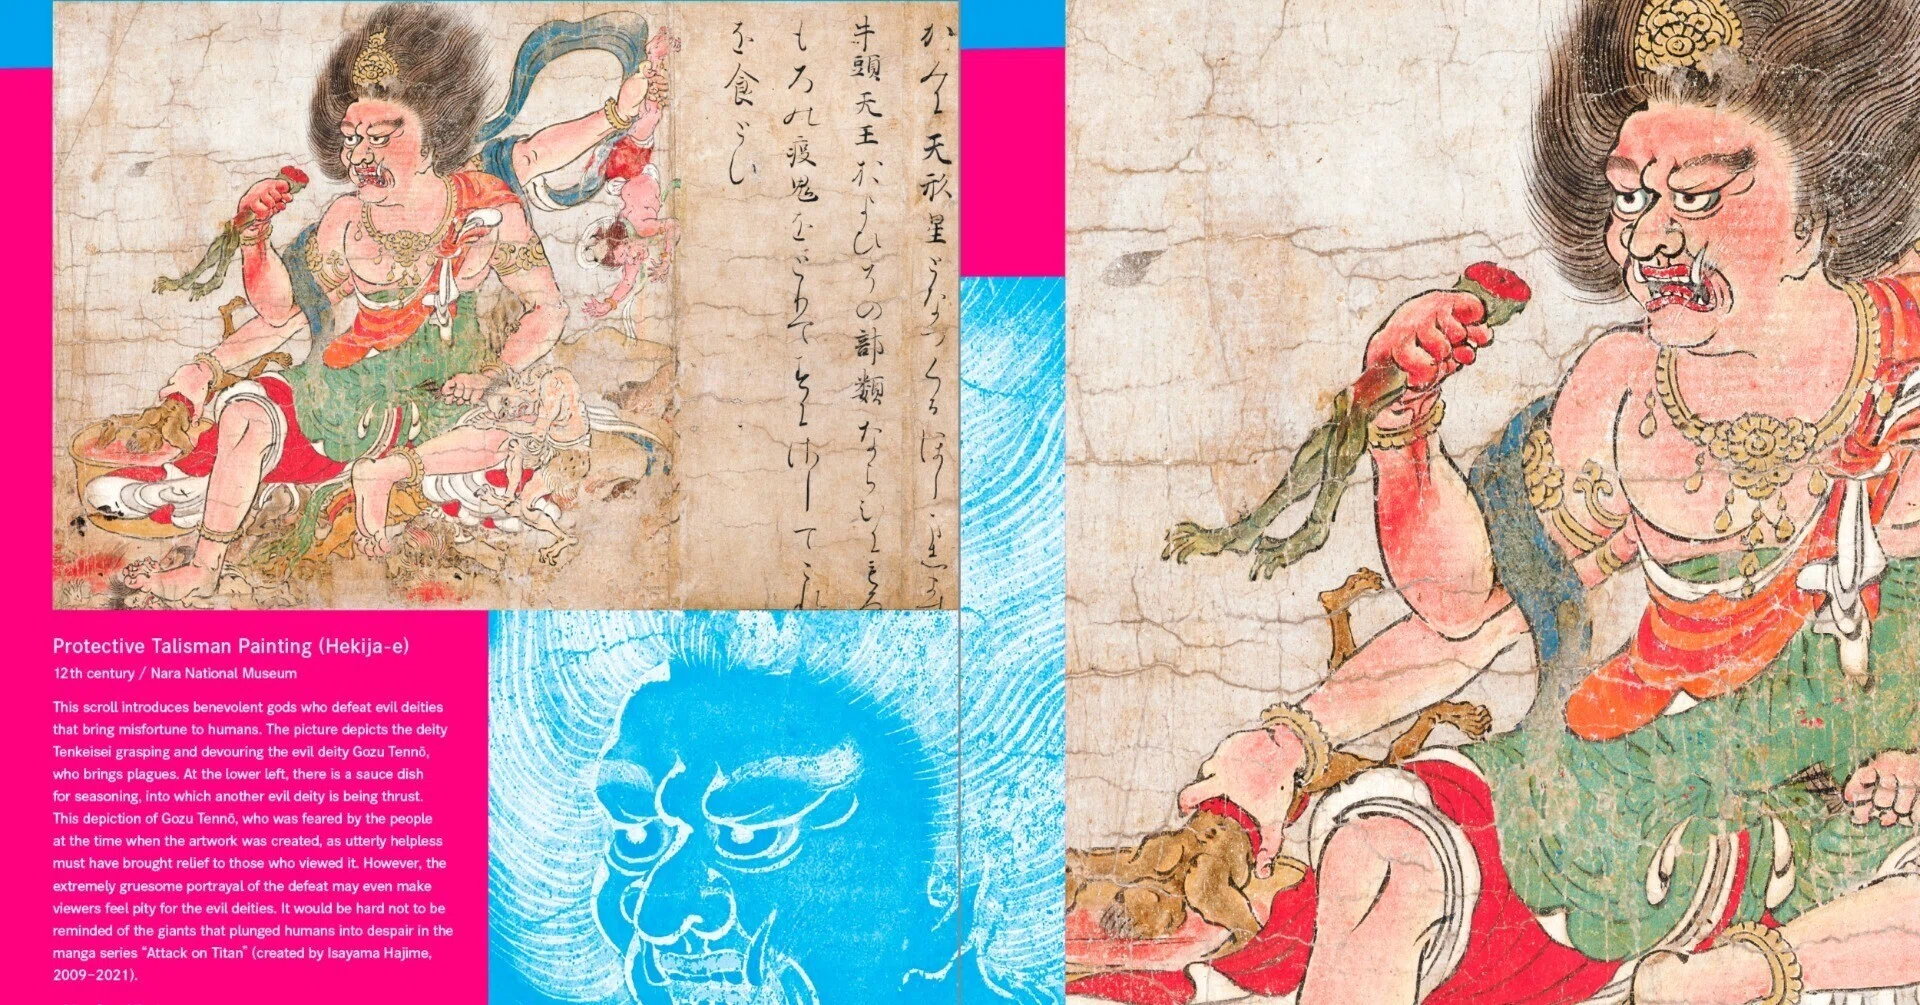 天形星となつくるほし
牛頭天王およひその部類ならひに
もろの疫鬼をとりてすにさしてこれ
を食とす
Protective Talisman Painting (Hekija-e)
12th century / Nara National Museum
This scroll introduces benevolent gods who defeat evil deities
that bring misfortune to humans. The picture depicts the deity
Tenkeisei grasping and devouring the evil deity Gozu Tennō,
who brings plagues. At the lower left, there is a sauce dish
for seasoning, into which another evil deity is being thrust.
This depiction of Gozu Tennō, who was feared by the people
at the time when the artwork was created, as utterly helpless
must have brought relief to those who viewed it. However, the
extremely gruesome portrayal of the defeat may even make
viewers feel pity for the evil deities. It would be hard not to be
reminded of the giants that plunged humans into despair in the
manga series “Attack on Titan” (created by Isayama Hajime,
2009–2021).